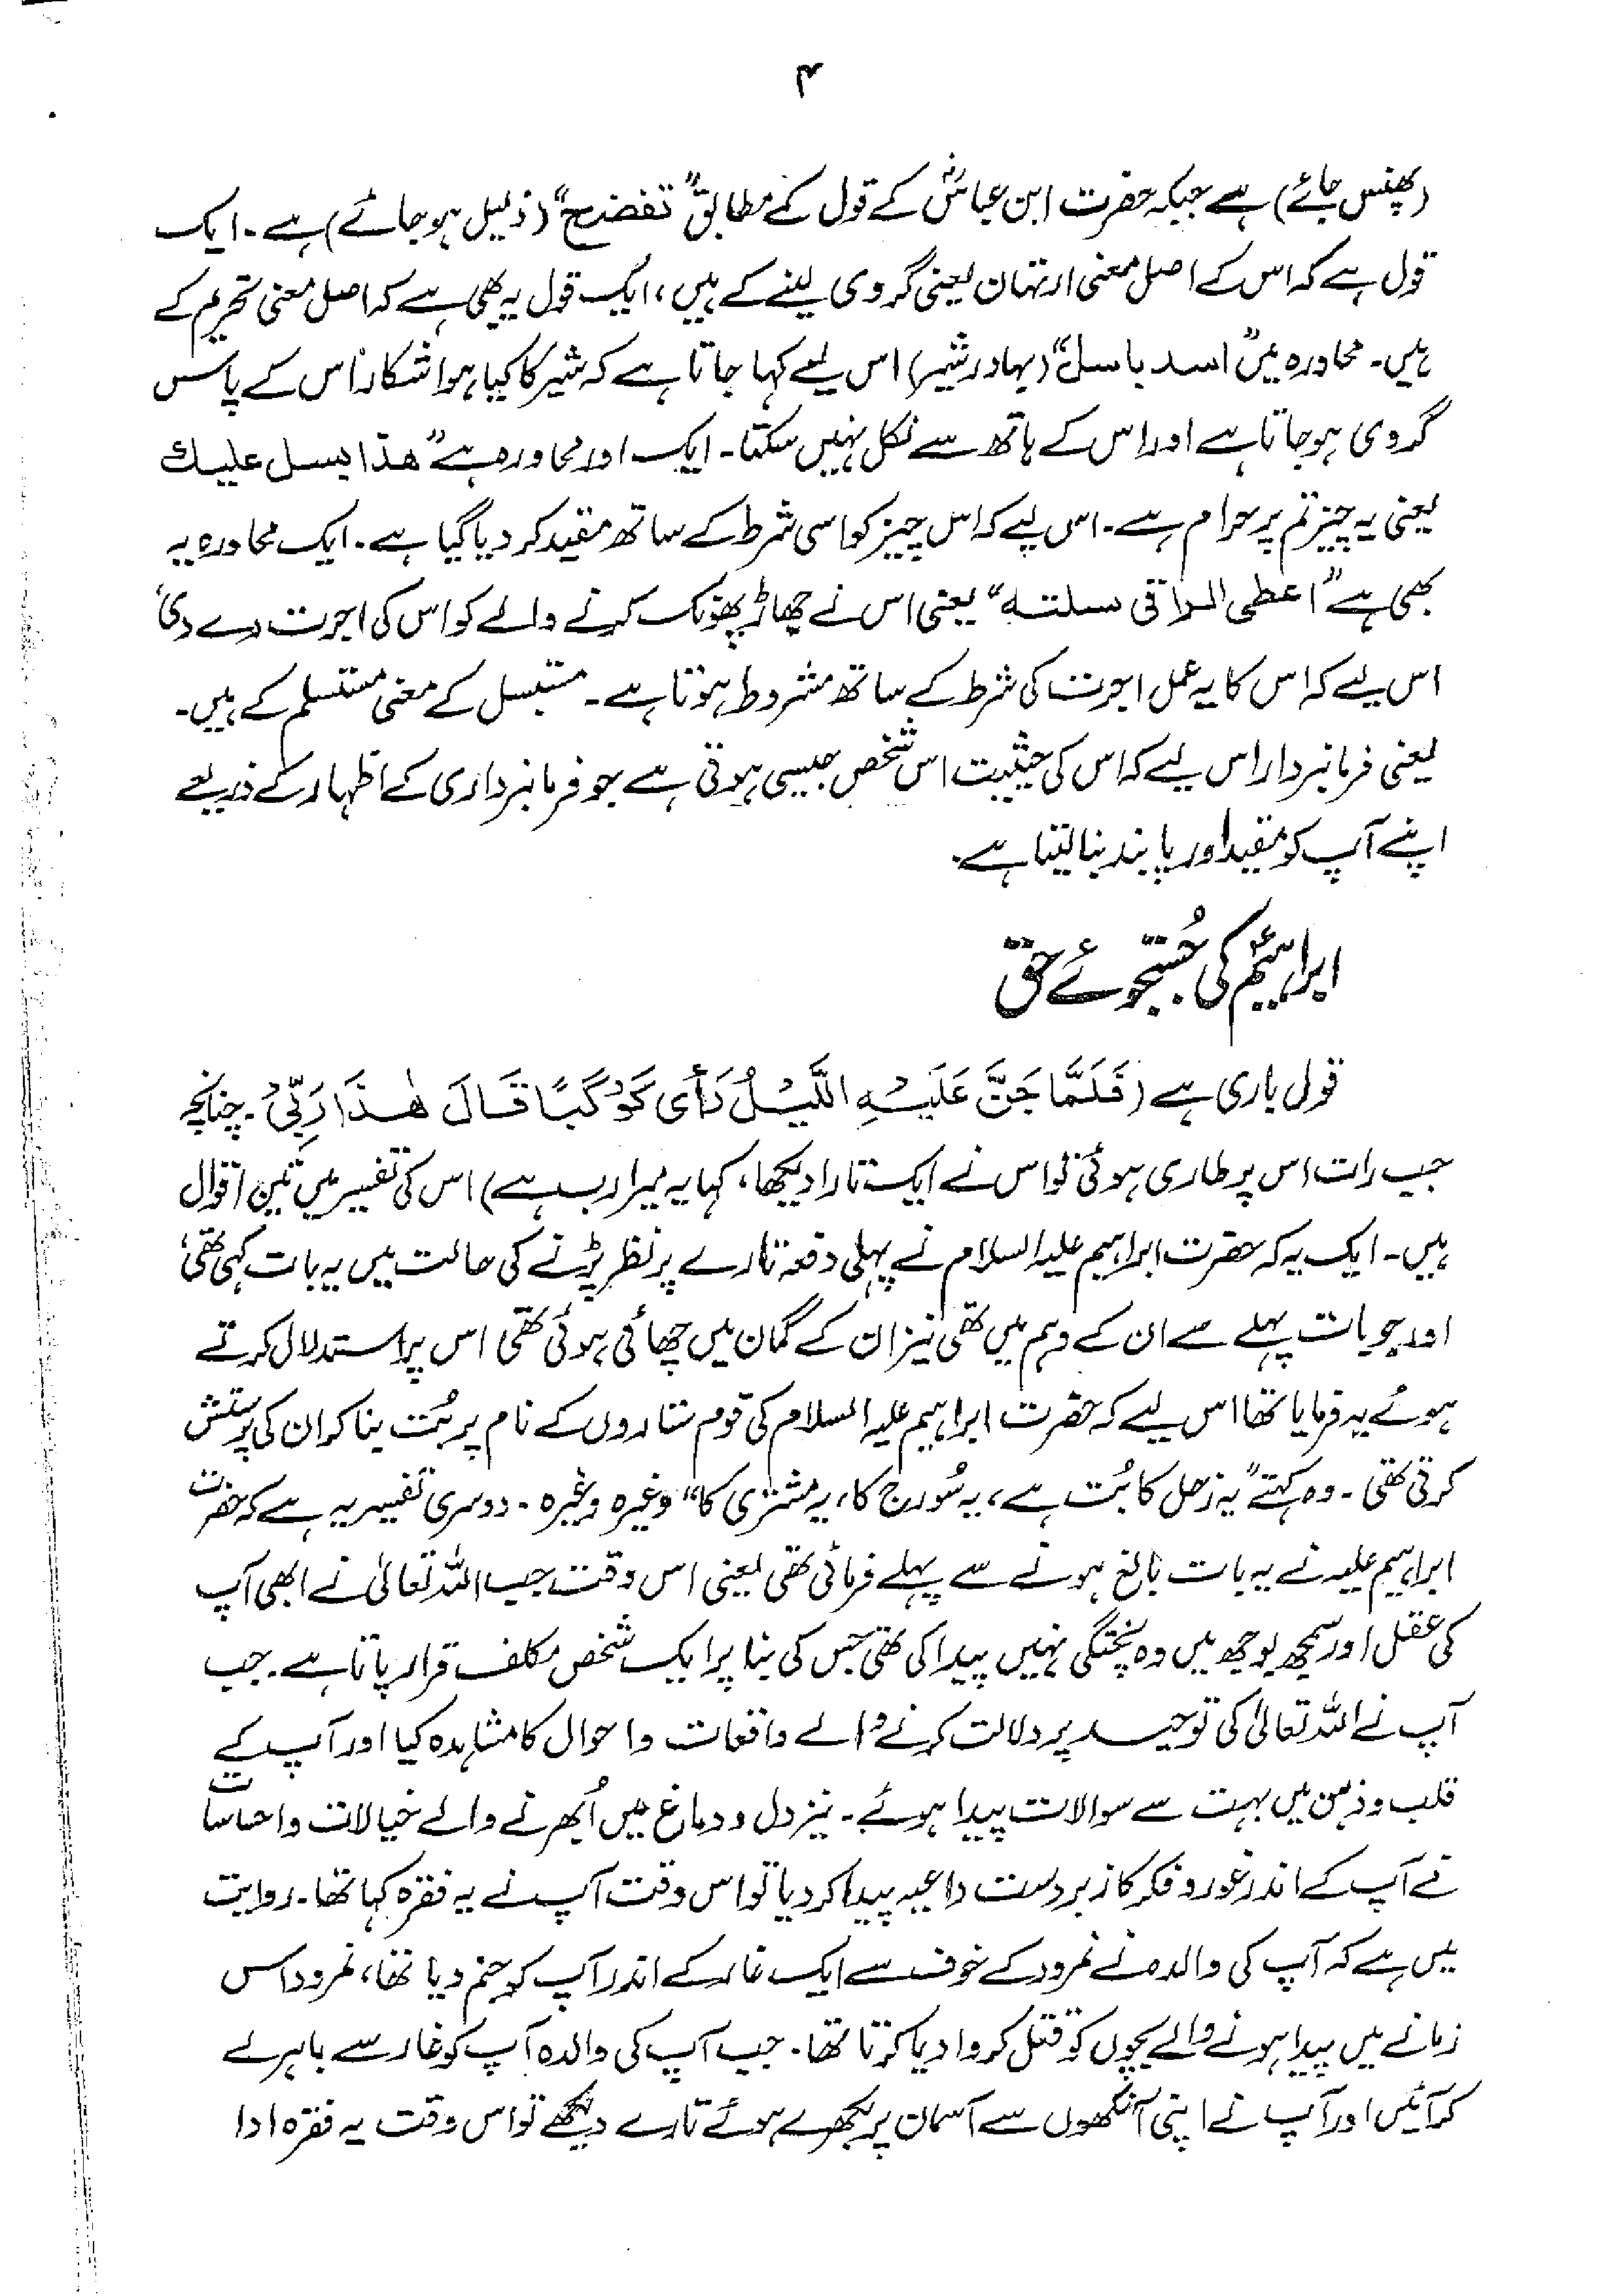 ۴
(پھنس جائے) ہے جبکہ حضرت ابن عباسؓ کے قول کے مطابق "تفضح" (ذلیل ہو جائے) ہے۔ ایک
قول ہے کہ اس کے اصل معنی ارتہان یعنی گروی لینے کے ہیں، ایک قول یہ بھی ہے کہ اصل معنی تحریم کے
ہیں۔ محاورہ میں "اسد باسل" (بہادر شیر) اس لیے کہا جاتا ہے کہ شیر کا کیا ہوا شکار اس کے پاس
گروی ہو جاتا ہے اور اس کے ہاتھ سے نکل نہیں سکتا۔ ایک اور محاورہ ہے "ھذا بسل علیك
یعنی یہ چیز تم پر حرام ہے۔ اس لیے کہ اس چیز کو اسی شرط کے ساتھ مقید کر دیا گیا ہے۔ ایک محاورہ یہ
بھی ہے "اعطی الراقی سلتہ" یعنی اس نے جھاڑ پھونک کرنے والے کو اس کی اجرت دے دی،
اس لیے کہ اس کا یہ عمل اجرت کی شرط کے ساتھ مشروط ہوتا ہے۔ مستبسل کے معنی مستسلم کے ہیں۔
یعنی فرمانبردار اس لیے کہ اس کی حیثیت اس شخص جیسی ہوتی ہے جو فرمانبرداری کے اظہار کے ذریعے
اپنے آپ کو مقید اور پابند بنا لیتا ہے۔
ابراہیمؑ کی جُستجوئے حق
قول باری ہے (فَلَمَّا جَنَّ عَلَيْهِ اللَّيْلُ رَأٰى كَوْكَبًا قَالَ هٰذَا رَبِّيْ۔ چنانچہ
جب رات اس پر طاری ہوئی تو اس نے ایک تارا دیکھا، کہا یہ میرا رب ہے) اس کی تفسیر میں تین اقوال
ہیں۔ ایک یہ کہ حضرت ابراہیم علیہ السلام نے پہلی دفعہ تارے پر نظر پڑنے کی حالت میں یہ بات کہی تھی،
اور جو بات پہلے سے ان کے وہم میں تھی نیز ان کے گمان میں چھائی ہوئی تھی اس پر استدلال کرتے
ہوئے یہ فرمایا تھا اس لیے کہ حضرت ابراہیم علیہ السلام کی قوم ستاروں کے نام پر بُت بنا کر ان کی پرستش
کرتی تھی۔ وہ کہتے "یہ زحل کا بُت ہے، یہ سُورج کا، یہ مشتری کا" وغیرہ وغیرہ۔ دوسری تفسیر یہ ہے کہ حضرت
ابراہیم علیہ نے یہ بات بالغ ہونے سے پہلے فرمائی تھی یعنی اس وقت جب اللہ تعالیٰ نے ابھی آپ
کی عقل اور سمجھ بوجھ میں وہ پختگی نہیں پیدا کی تھی جس کی بنا پر ایک شخص مکلف قرار پاتا ہے۔ جب
آپ نے اللہ تعالیٰ کی توحید پر دلالت کرنے والے واقعات و احوال کا مشاہدہ کیا اور آپ کے
قلب و ذہن میں بہت سے سوالات پیدا ہوئے۔ نیز دل و دماغ میں اُبھرنے والے خیالات و احساسات
نے آپ کے اندر غور و فکر کا زبردست داعیہ پیدا کر دیا تو اس وقت آپ نے یہ فقرہ کہا تھا۔ روایت
میں ہے کہ آپ کی والدہ نے نمرود کے خوف سے ایک غار کے اندر آپ کو جنم دیا تھا، نمرود اس
زمانے میں پیدا ہونے والے بچوں کو قتل کروا دیا کرتا تھا۔ جب آپ کی والدہ آپ کو غار سے باہر لے
کر آئیں اور آپ نے اپنی آنکھوں سے آسمان پر بکھرے ہوئے تارے دیکھے تو اس وقت یہ فقرہ ادا